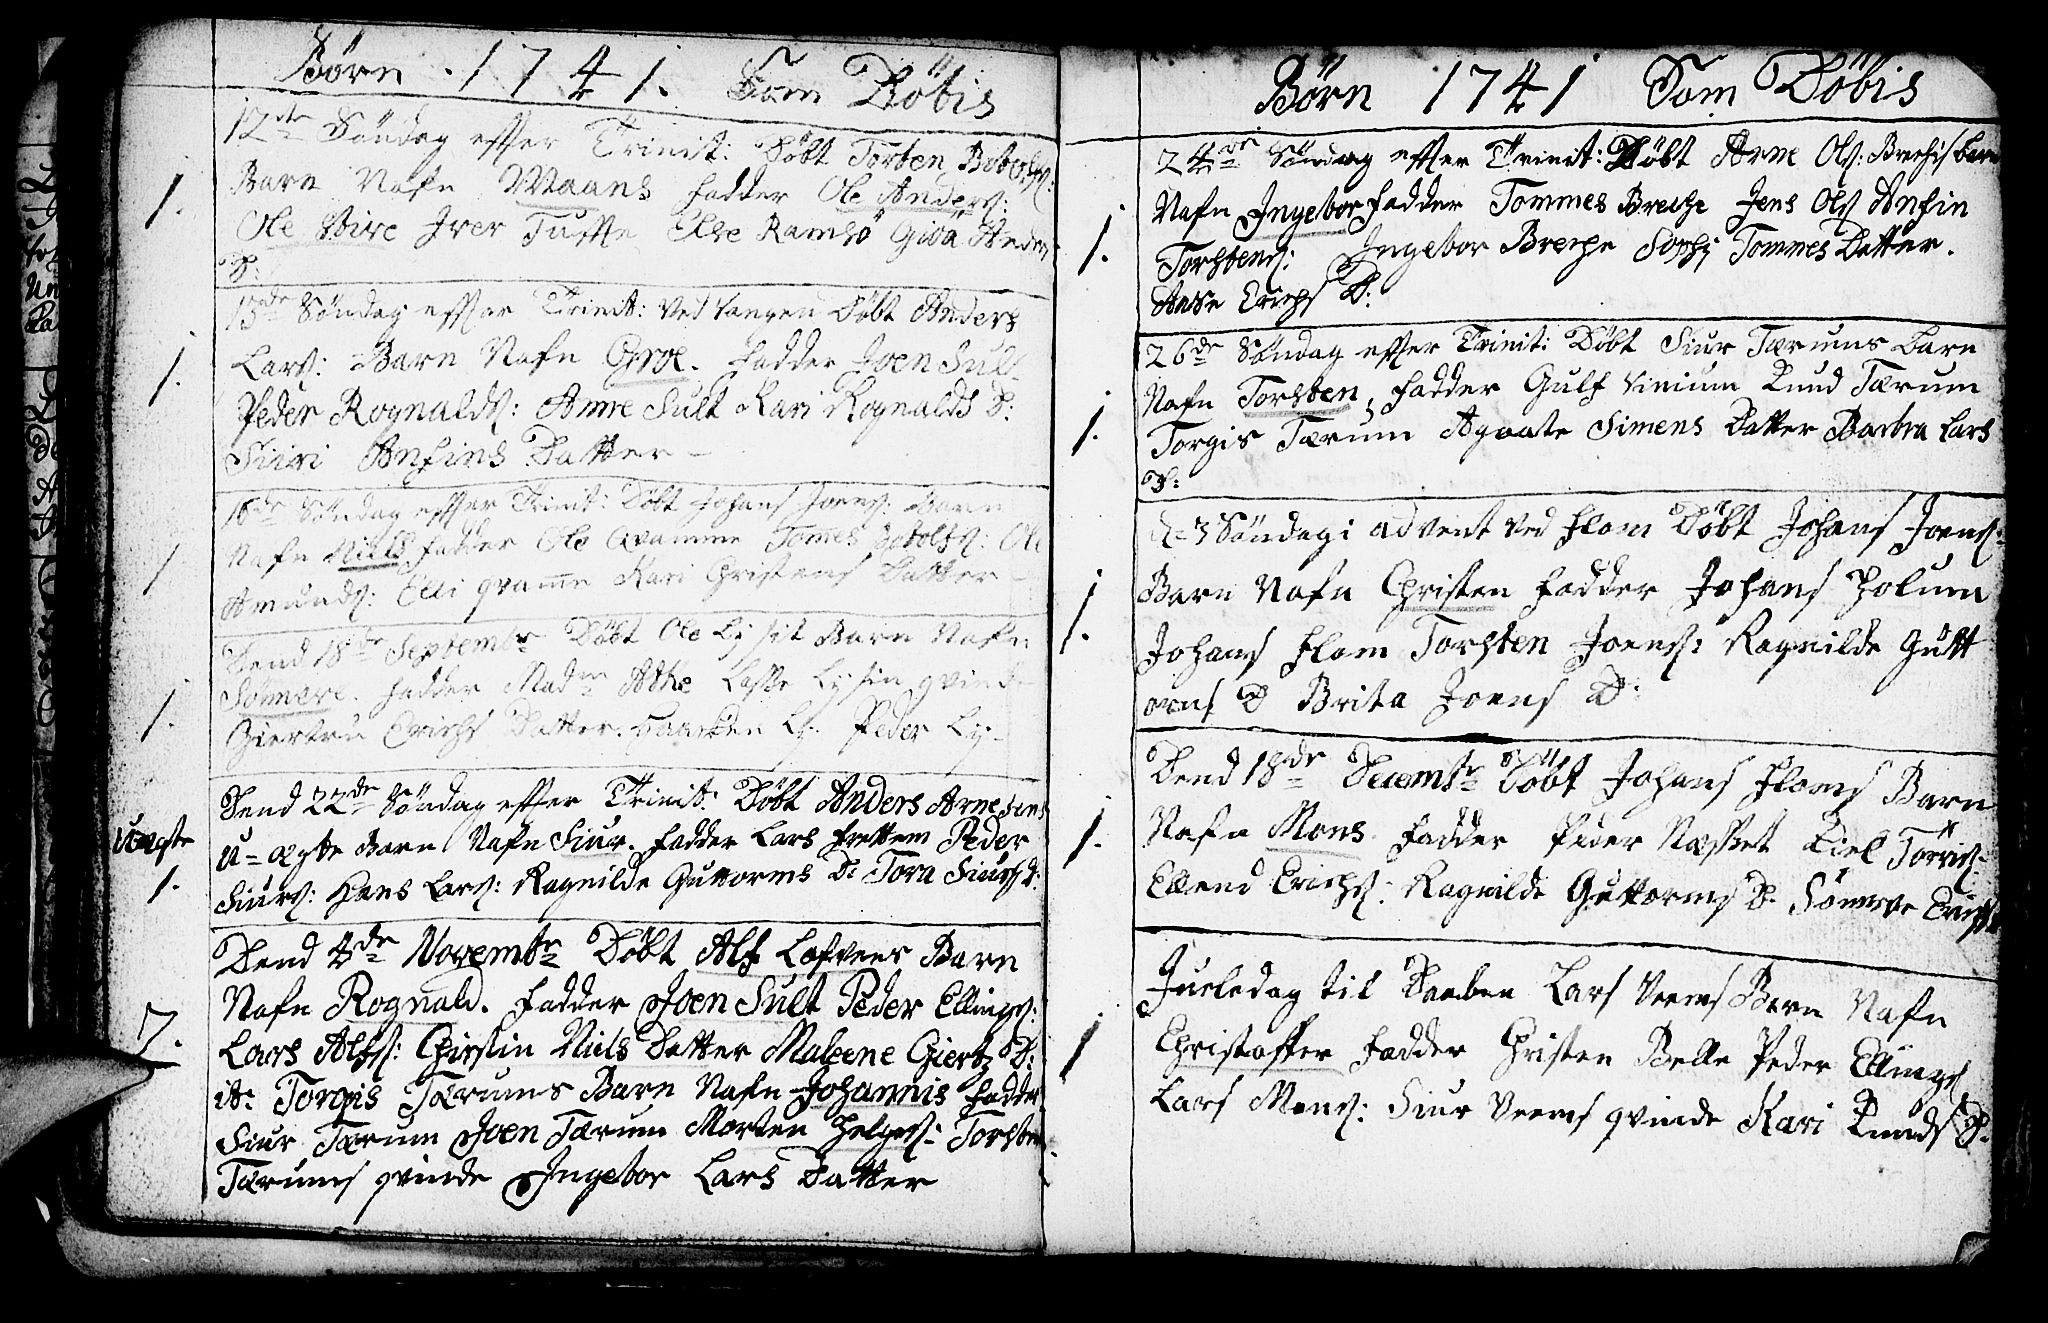 Børn . 1741. Som Döbis
12te Söndag efter Trinit: Döbt Torben
1.
Barn Nafn Maans fadder Ole Anders:
Ole Vire Iver Tufte Else Ramsö Anders
D:
Söndag efter Trinit: Ved Vangen Döbt Anders
1.
Lars: Barn Nafn Groe. fadder Joen Sult
Peder Rognalds: Anne Sult Kari Rognalds D:
Siiri Anfins Datter
Söndag efter Trinit: Döbt Johans Joens: Barn
1
Nafn Niels fadder Ole Qvamme Tomes Botolfs: Ole
Amunds: Elli qvame Kari Christens Datter
Dend 18de Septembr Döbt Ole Barn Nafn
1.
fadder Madm Lasse qvinde
Giertru Erichs Datter. Haarken Ly. Peder Ly-
Dend 22de Söndag efter Trinit: Döbt Anders Arnesens
Uægte
u= ægte Barn Nafn Siur. fadder Lars frettem Peder
1.
Siurs: Hans Lars: Ragnilde Guttorms D: Tora Siurs d:
Dend 4de Novembr Döbt Alf Lofvees Barn
Nafn Rognald. fadder Joen Sult Peder Ellings:
Lars Alfs: Chirstin Niels Datter Maleene Giertz D:
it: Torgis Tærums Barn Nafn Johannis fadder
Siur Tærum Joen Tærum Morten Helges: Torsten
Tærums qvinde Ingebor Lars Datter
Børn 1741 Som Döbis
24de Söndag efter Trinit: Döbt Arne Ols: Brechis barn
Nafn Ingebor fadder Tommes Breche Jens Ols Anfin
1.
Torstens: Ingebor Breche Sophi Tommes Datter.
Aase Erichs D:
26de Söndag efter Trinit: Döbt Siur Tærums barn
Nafn Torsten, fadder Gulf Vinium Knud Tærum
1.
Torgis Tærum Agaate Simens Datter Barbra Lars
D:
d= 3 Söndag i advent ved flom Döbt Johans Joens:
Barn Nafn Christen fadder Johans Holum
1.
Johans flam Torsten Joens: Ragnilde Gutt
orms D Brita Joens D:
Dend 18de Decembr Döbt Johans floms Barn
1.
Nafn Mons fadder Peder Næsset Kiel
Ellend Erichs: Ragnilde Guttorms D. Erichs
Jueledag til Daaben Lars Veems Barn Nafn
1
Christoffer fadder Christen Belle Peder Ellings
Lars Mons: Siur Veems qvinde Kari Knuds D.